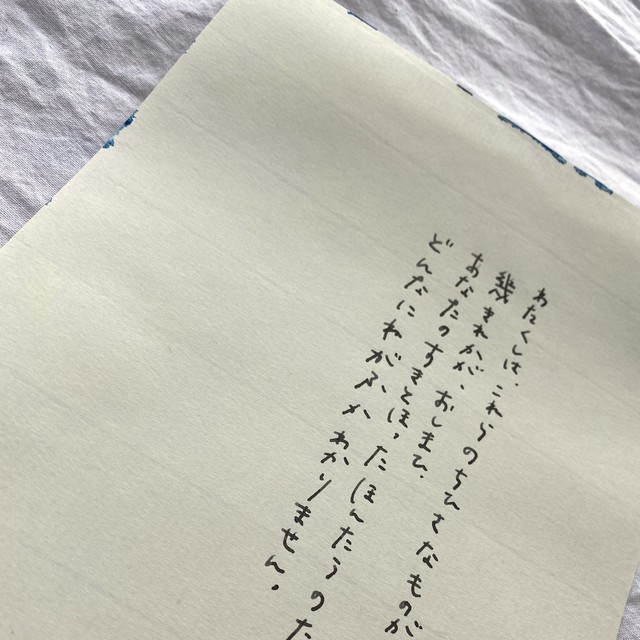 わたくしは、これらのちいさなものが
幾きれかが、おしまひ、
あなたのすきとほったほんたうのた
どんなにねがふかわかりません。